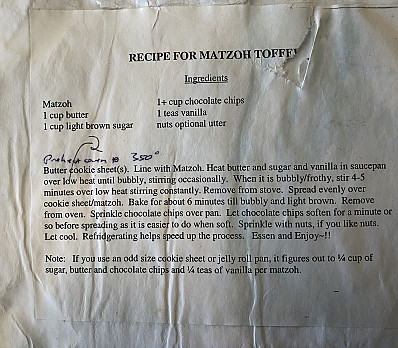 RECIPE FOR MATZOH TOFFE
Ingredients
Matzoh 1+ cup chocolate chips
1 cup butter 1 teas vanilla
1 cup light brown sugar nuts optional utter
Preheat oven to 350°
Butter cookie sheet(s). Line with Matzoh. Heat butter and sugar and vanilla in saucepan
over low heat until bubbly, stirring occasionally. When it is bubbly/frothy, stir 4-5
minutes over low heat stirring constantly. Remove from stove. Spread evenly over
cookie sheet/matzoh. Bake for about 6 minutes till bubbly and light brown. Remove
from oven. Sprinkle chocolate chips over pan. Let chocolate chips soften for a minute or
so before spreading as it is easier to do when soft. Sprinkle with nuts, if you like nuts.
Let cool. Refridgerating helps speed up the process. Essen and Enjoy~!!
Note: If you use an odd size cookie sheet or jelly roll pan, it figures out to ¼ cup of
sugar, butter and chocolate chips and ¼ teas of vanilla per matzoh.